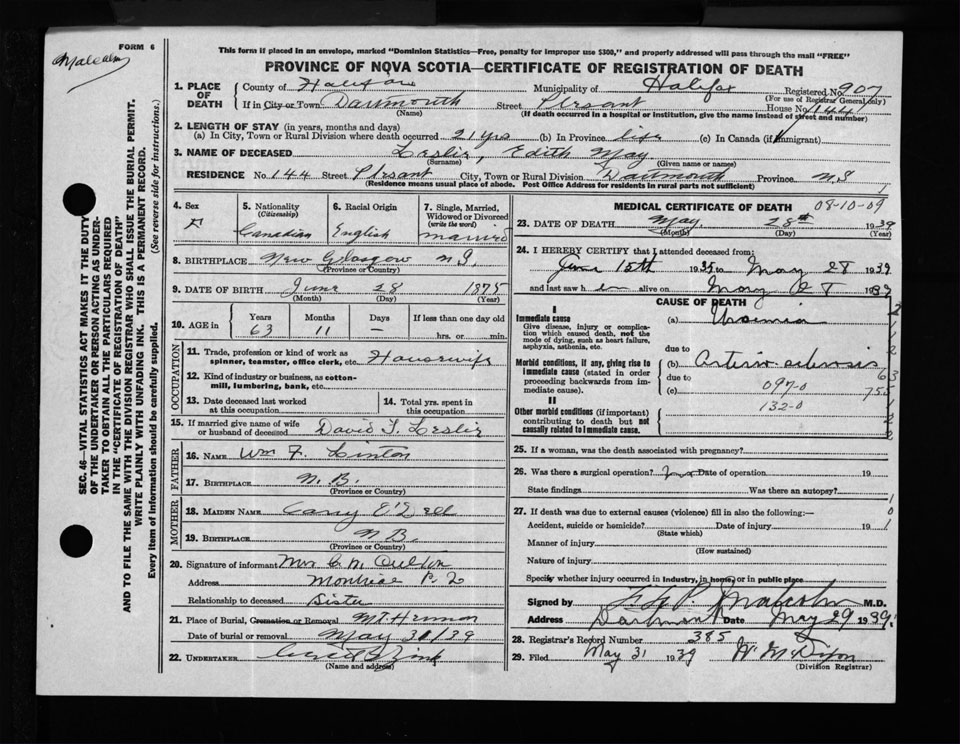 Malcolm
FORM 6
This form if placed in an envelope, marked "Dominion Statistics—Free, penalty for improper use $300," and properly addressed will pass through the mail "FREE"
PROVINCE OF NOVA SCOTIA—CERTIFICATE OF REGISTRATION OF DEATH
SEC. 46—VITAL STATISTICS ACT MAKES IT THE DUTY
OF THE UNDERTAKER OR PERSON ACTING AS UNDER-
TAKER TO OBTAIN ALL THE PARTICULARS REQUIRED
IN THE "CERTIFICATE OF REGISTRATION OF DEATH"
AND TO FILE THE SAME WITH THE DIVISION REGISTRAR WHO SHALL ISSUE THE BURIAL PERMIT.
WRITE PLAINLY WITH UNFADING INK. THIS IS A PERMANENT RECORD.
Every item of Information should be carefully supplied. (See reverse side for instructions.)
1. PLACE OF DEATH
County of Halifax Municipality of Halifax Registered No. 907
(For use of Registrar General only)
If in City or Town Dartmouth Street House No. 144
(Name) (If death occurred in a hospital or institution, give the name instead of street and number)
2. LENGTH OF STAY (in years, months and days)
(a) In City, Town or Rural Division where death occurred 21 yrs (b) In Province life (c) In Canada (if immigrant)
3. NAME OF DECEASED Leslie, Edith May
(Surname) (Given name or names)
RESIDENCE No. 144 Street City, Town or Rural Division Dartmouth Province N.S
(Residence means usual place of abode. Post Office Address for residents in rural parts not sufficient)
4. Sex F
5. Nationality (Citizenship) Canadian
6. Racial Origin English
7. Single, Married, Widowed or Divorced (write the word) married
8. BIRTHPLACE New Glasgow N.S.
(Province or Country)
9. DATE OF BIRTH June 28 1875
(Month) (Day) (Year)
10. AGE in Years Months Days If less than one day old
63 11 — hrs. or min.
OCCUPATION
11. Trade, profession or kind of work as spinner, teamster, office clerk, etc. Housewife
12. Kind of industry or business, as cotton-mill, lumbering, bank, etc.
13. Date deceased last worked at this occupation
14. Total yrs. spent in this occupation
15. If married give name of wife or husband of deceased David T. Leslie
FATHER
16. NAME Wm F. Linton
17. BIRTHPLACE N.B.
(Province or Country)
MOTHER
18. MAIDEN NAME
19. BIRTHPLACE N.B.
(Province or Country)
20. Signature of informant Mrs
Address
Relationship to deceased Sister
21. Place of Burial, Cremation or Removal Mt Hermon
Date of burial or removal May 31/39
22. UNDERTAKER Zink
(Name and address)
MEDICAL CERTIFICATE OF DEATH 08-10-09
23. DATE OF DEATH May 28th 1939
(Month) (Day) (Year)
24. I HEREBY CERTIFY that I attended deceased from:
June 15th to May 28 1939
and last saw h alive on May 1939
CAUSE OF DEATH
I
Immediate cause
Give disease, injury or complication which caused death, not the mode of dying, such as heart failure, asphyxia, asthenia, etc.
(a) Uraemia
due to
Morbid conditions, if any, giving rise to immediate cause (stated in order proceeding backwards from immediate cause).
(b)
due to
097-0
(c)
132-0
II
Other morbid conditions (if important) contributing to death but not causally related to immediate cause.
25. If a woman, was the death associated with pregnancy?
26. Was there a surgical operation? no Date of operation 19
State findings Was there an autopsy?
27. If death was due to external causes (violence) fill in also the following:—
Accident, suicide or homicide? Date of injury 19
(State which)
Manner of injury
(How sustained)
Nature of injury
Specify whether injury occurred in industry, in home, or in public place
Signed by Malcolm M.D.
Address Dartmouth Date May 29 1939
28. Registrar's Record Number 385
29. Filed May 31 1939
(Division Registrar)